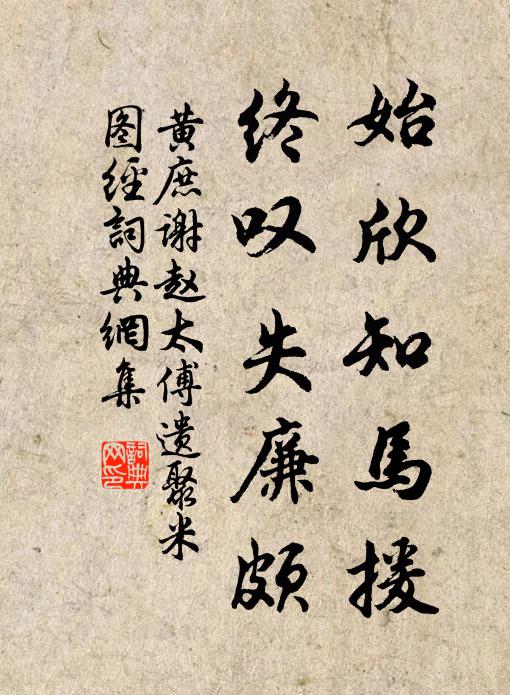 始欣知馬援
终叹失廉頗
黄庶谢赵太傅遗聚米
图經詞典網集
詞典网印